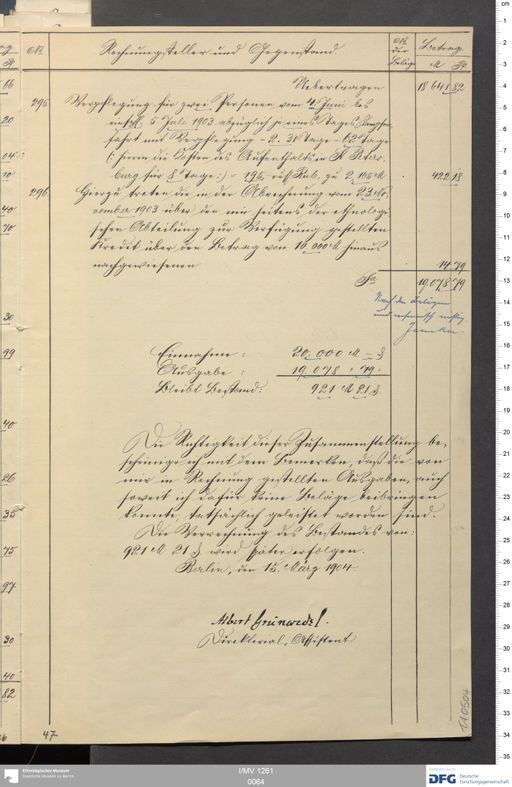 No
Rechnungsteller und Gegenstand
No der Beläge
Betrag
M Pf.
Uebertragen 18 641 82
295 Verpflegung für zwei Personen vom 4. Juni bis
5 Juli 1903 abzüglich eines Tages
fahrt mit Verpflegung - 2. 31 Tage = 62 Tage
(: ferner die Kosten des Aufenthalts in St Peters-
burg für 8 Tage :) - 195 Rub. zu 2,165 M 422 18
296 Hierzu treten die in der Abrechnung vom 23 No-
vember 1903 über den mir seitens der ethnologi-
schen Abteilung zur Verfügung gestellten
Kredit über den Betrag von 16 000 M hinaus
nachgewiesenen 14 79
Sa 19 078 79
Nach den Belägen
und rechnerisch richtig
Einnahme: 20.000 M - ₰
Ausgabe: 19.078 " 79 "
Bleibt Bestand: 921 M 21 ₰
Die Richtigkeit dieser Zusammenstellung be-
scheinige ich mit dem Bemerken, daß die von
mir in Rechnung gestellten Ausgaben, auch
soweit ich dafür keine Beläge beibringen
konnte, tatsächlich geleistet worden sind.
Die Verrechnung des Bestandes von:
921 M 21 ₰ wird später erfolgen.
Berlin, den 15. März 1904.
Albert Grünwedel.
Direktorial-Assistent
47
Ethnologisches Museum
Staatliche Museen zu Berlin
I/MV 1261
0064
DFG Deutsche
Forschungsgemeinschaft